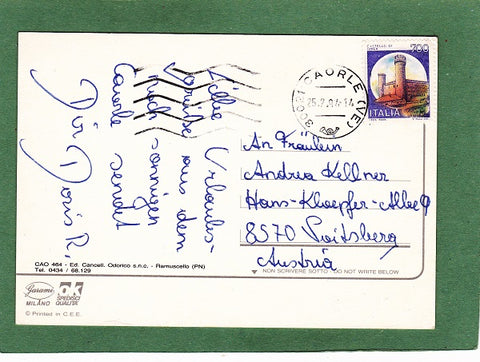 Liebe Urlaubs-
grüße aus dem
noch sonnigen
Caorle sendet
Dir Doris R.
CASTELLO DI
700
ITALIA
30021 CAORLE (VE)
25.2.94-14
An Fräulein
Andrea Kellner
Hans-Kloepfer-Allee 9
8570 Voitsberg
Austria
CAO 464 - Ed. Cancell. Odorico s.n.c. - Ramuscello (PN)
Tel. 0434 / 68.129
NON SCRIVERE SOTTO - DO NOT WRITE BELOW
Garami
MILANO
OK
SPEDISCI
QUALITA'
© Printed in C.E.E.